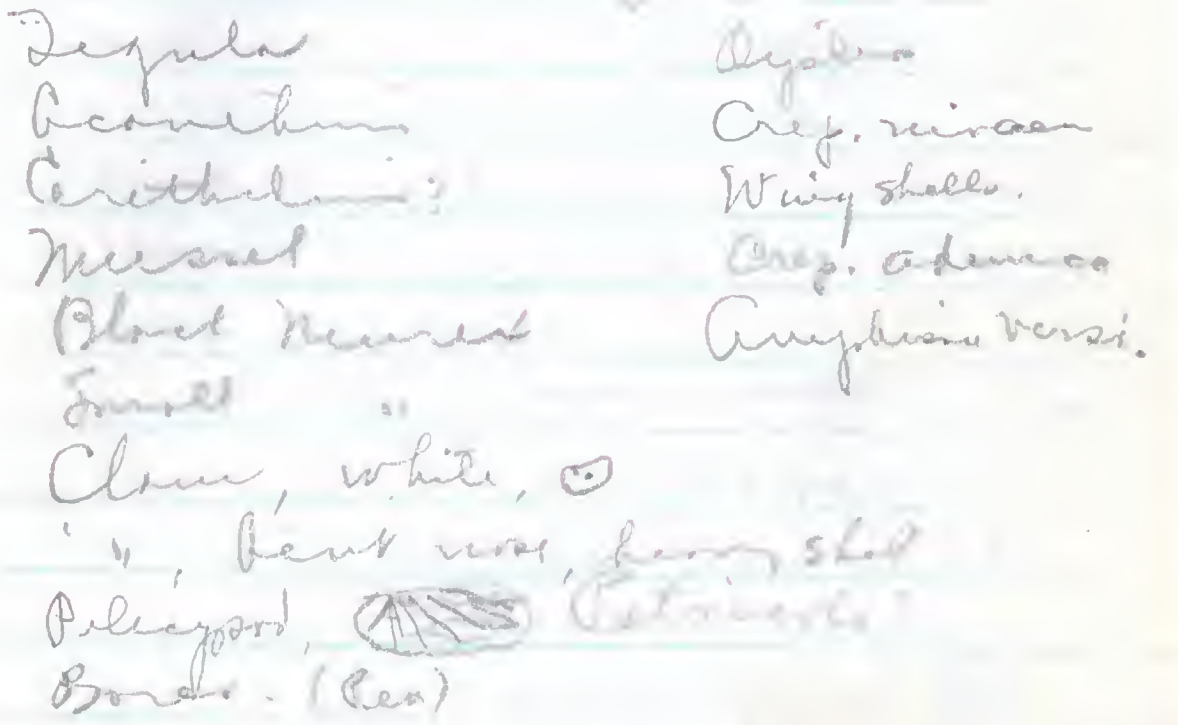 Tegula
Acanthina
Cerithidea ?
Mussel
Black Murex
Small "
Clam, white,
" , bent nose, heavy shell
Pelecypod,
Borer. (Pea)
Oyster
Crep. nivea
Wing shells.
Crep. adunca
Amphissa versi.